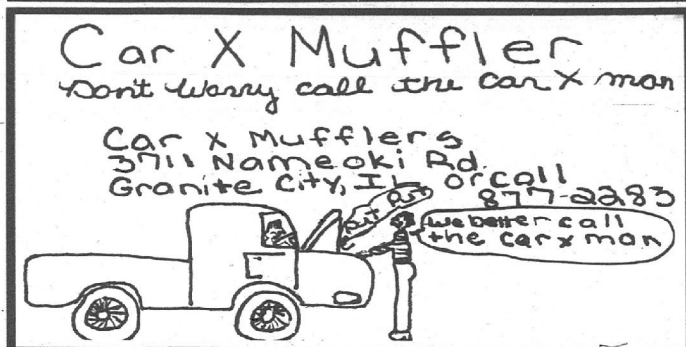 Car X Muffler
Don't Worry call the Car X man
Car X Mufflers
3711 Nameoki Rd.
Granite City, IL or call
877-2283
put put
we better call
the car x man